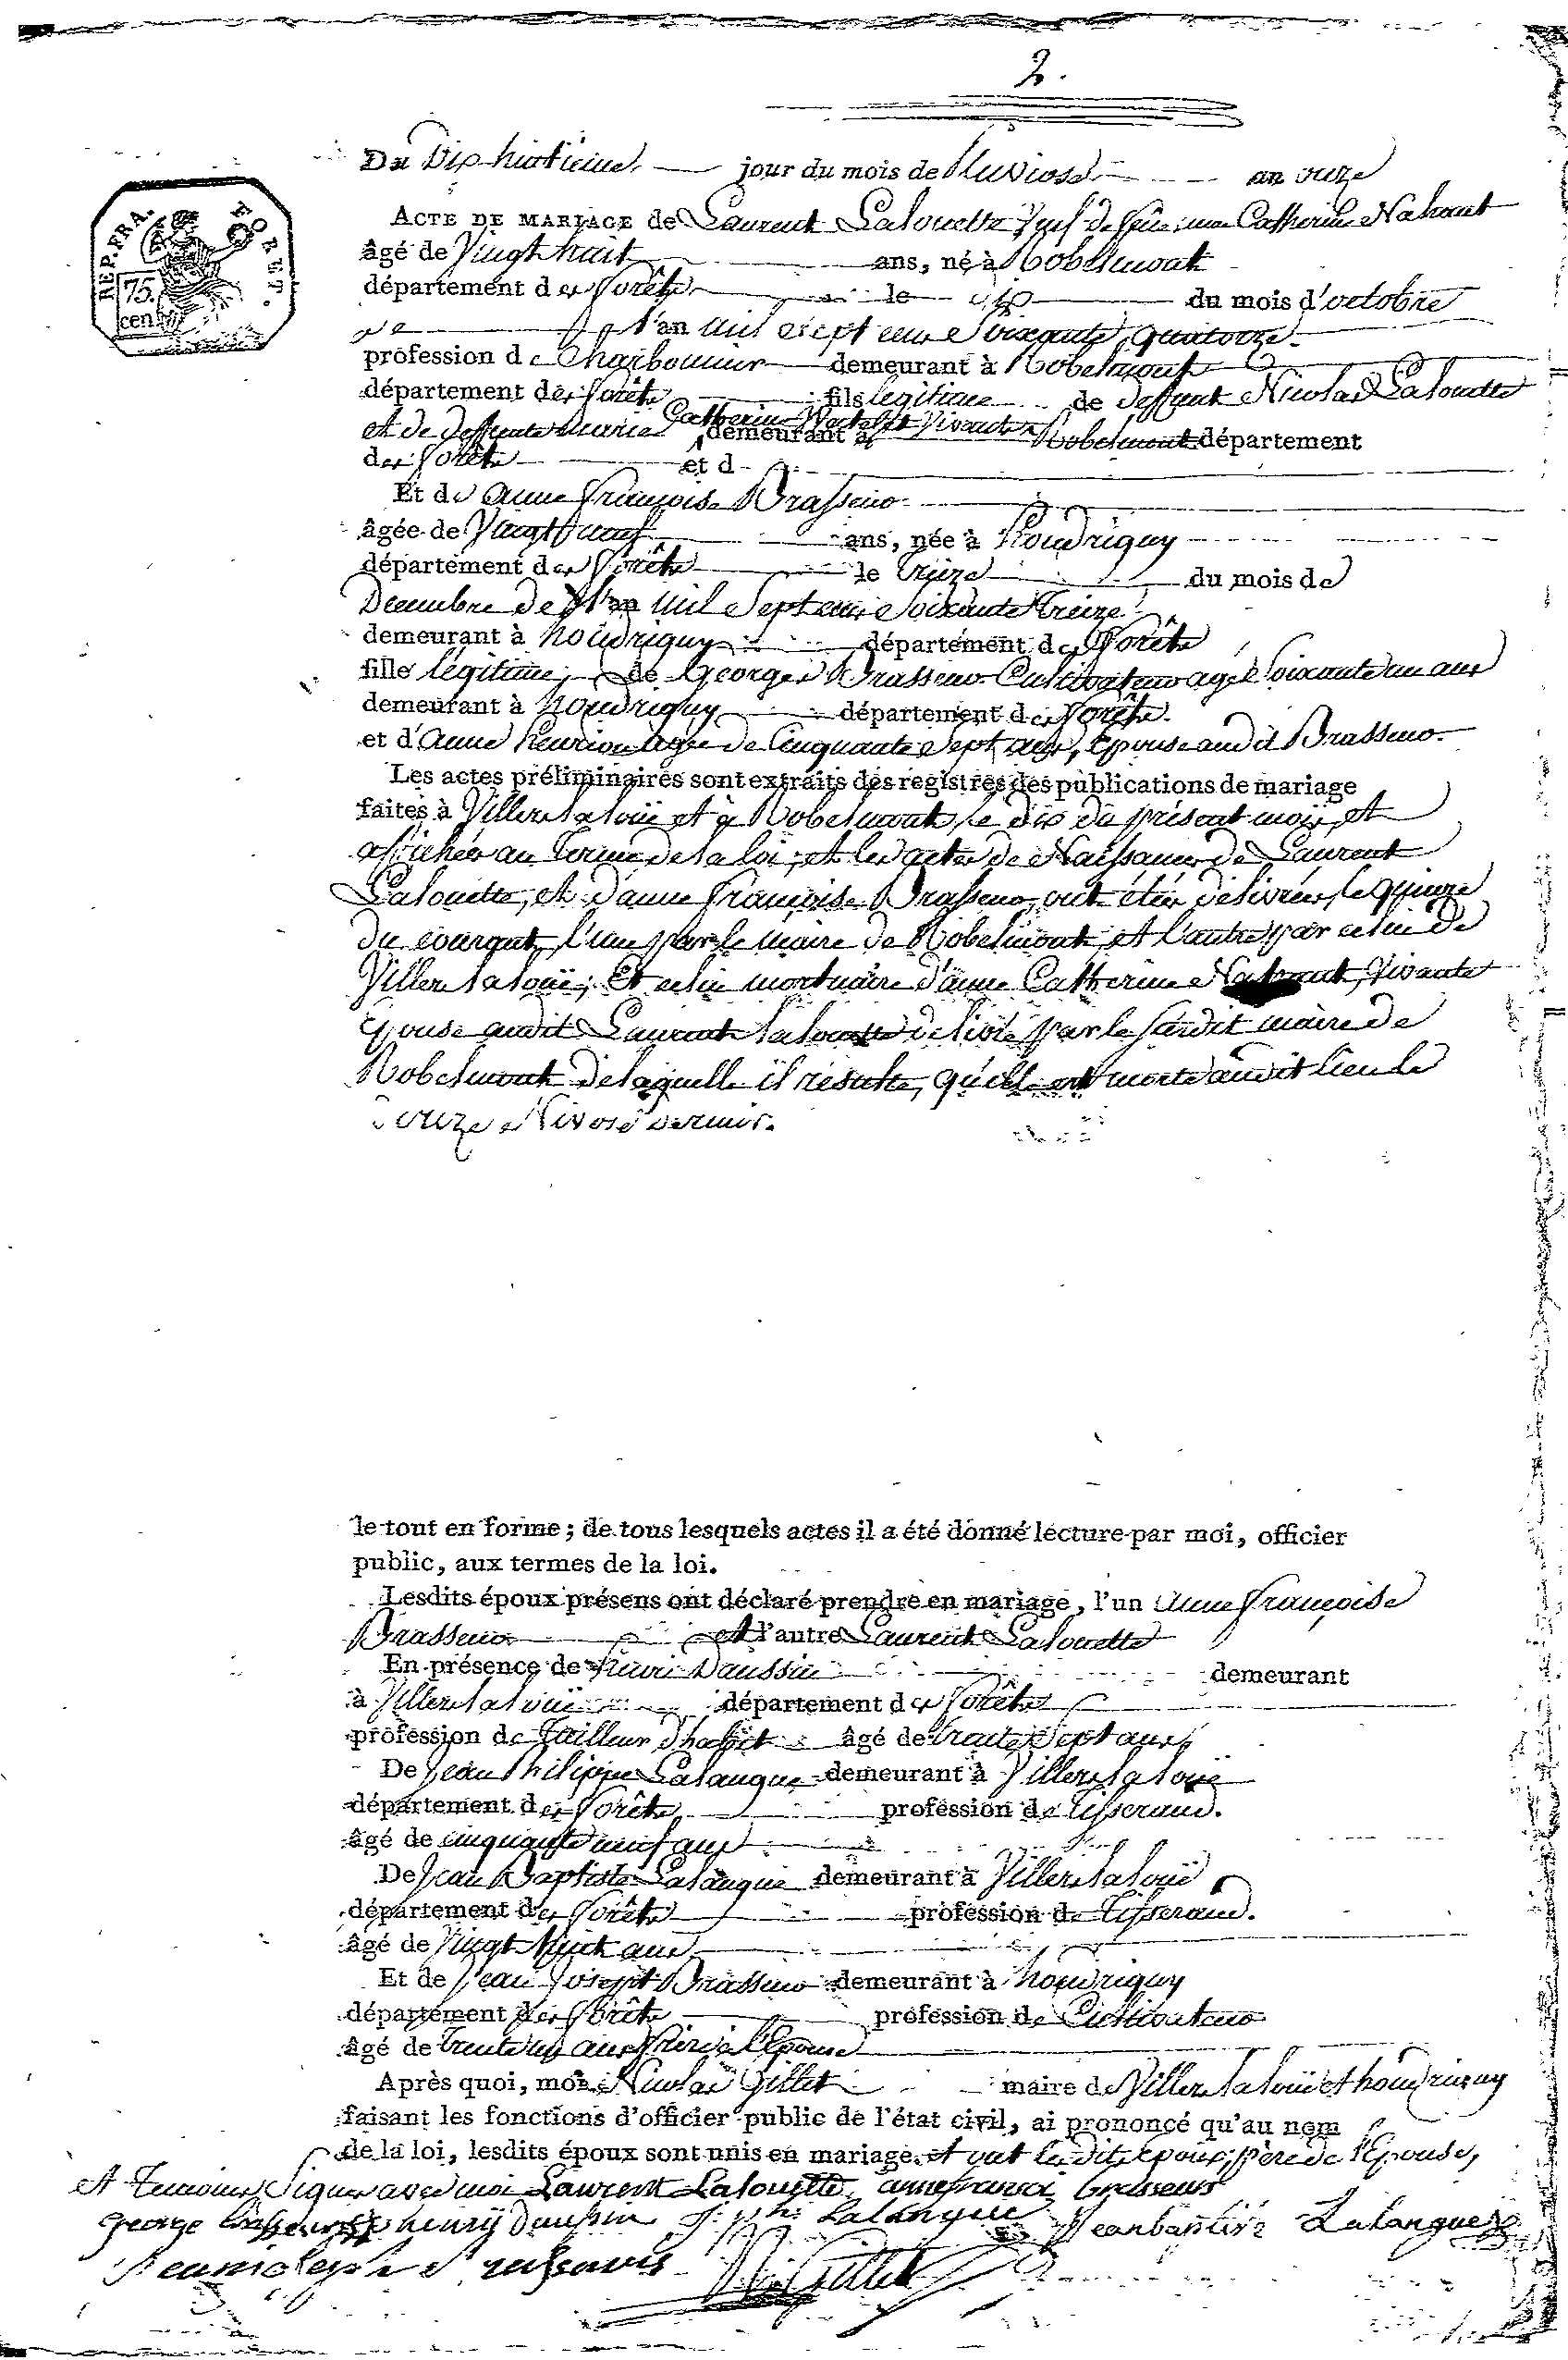 2.
Du Dix huitieme jour du mois de Pluviose an onze
REP. FRA. FORET.
75. cen.
ACTE DE MARIAGE de Laurent Lalouette Veuf de Catherine Nahant
âgé de Vingt huit ans, né à Robelmont
département des Forêts le dix du mois d'octobre
l'an mil sept cent soixante quatorze.
profession de Charbonnier demeurant à Robelmont
département des Forêts fils legitime de deffunt Nicolas Lalouette
et de deffunte Marie Catherine Vivante demeurant à Robelmont département
des Forêts et d
Et de Anne françoise Brasseur
âgée de Vingt neuf ans, née à houdrigny
département des Forêts le Treize du mois de
Decembre de l'an mil Sept cent Soixante Treize
demeurant à houdrigny département des Forêts
fille légitime de George Brasseur Cultivateur agé Soixante un ans
demeurant à houdrigny département des Forêts.
et d'anne henrion agée de Cinquante Sept ans, Epouse audit Brasseur.
Les actes préliminaires sont extraits des registres des publications de mariage
faites à Villers la loüe et à Robelmont, le dix du présent mois, et
affichés au Terme de la loi; et les actes de Naissances de Laurent
Lalouette, et d'anne françoise Brasseur, ont étés délivrés, le quinze
du courant, l'un par le maire de Robelmont, et l'autre par celui de
Villers la loüe; Et celui mortuaire d'anne Catherine Nahant, Vivante
Epouse audit Laurent lalouette delivré par le Susdit maire de
Robelmont, de laquelle il résulte, qu'elle est morte audit lieu le
onze Nivose dernier.
le tout en forme; de tous lesquels actes il a été donné lecture par moi, officier
public, aux termes de la loi.
Lesdits époux présens ont déclaré prendre en mariage, l'un Anne françoise
Brasseur et l'autre Laurent Lalouette
En présence de henri Daussin demeurant
à Villers la loüe département des Forêts
profession de Tailleur d'habit âgé de trente Sept ans
De Jean Philippe Lalangue demeurant à Villers la loüe
département des Forêts profession de Tisserand.
âgé de cinquante neuf ans
De Jean Baptiste Lalangue demeurant à Villers la loüe
département des Forêts profession de Tisserand.
âgé de Vingt huit ans
Et de Jean Joseph Brasseur demeurant à houdrigny
département des Forêts profession de Cultivateur
âgé de Trente ans frère à l'Epouse
Après quoi, moi Nicolas Gillet maire de Villers la loüe et houdrigny
faisant les fonctions d'officier public de l'état civil, ai prononcé qu'au nom
de la loi, lesdits époux sont unis en mariage. et ont lesdits epoux, père de l'Epouse,
et Temoins Signés avec moi Laurent Lalouette, anne francoi brasseur
george brasseur henry daussin J: ph: Lalangue Jean bantis Lalangue
N: Gillet